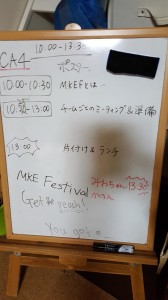 CA4
10:00-13:30
ポスター
10:00-10:30 MKEFとは…
10:30-13:00 チームごとのミーティング&準備
13:00 片付け & ランチ
MKE Festival
みわちゃん 13:30
Get the yeah!
You got